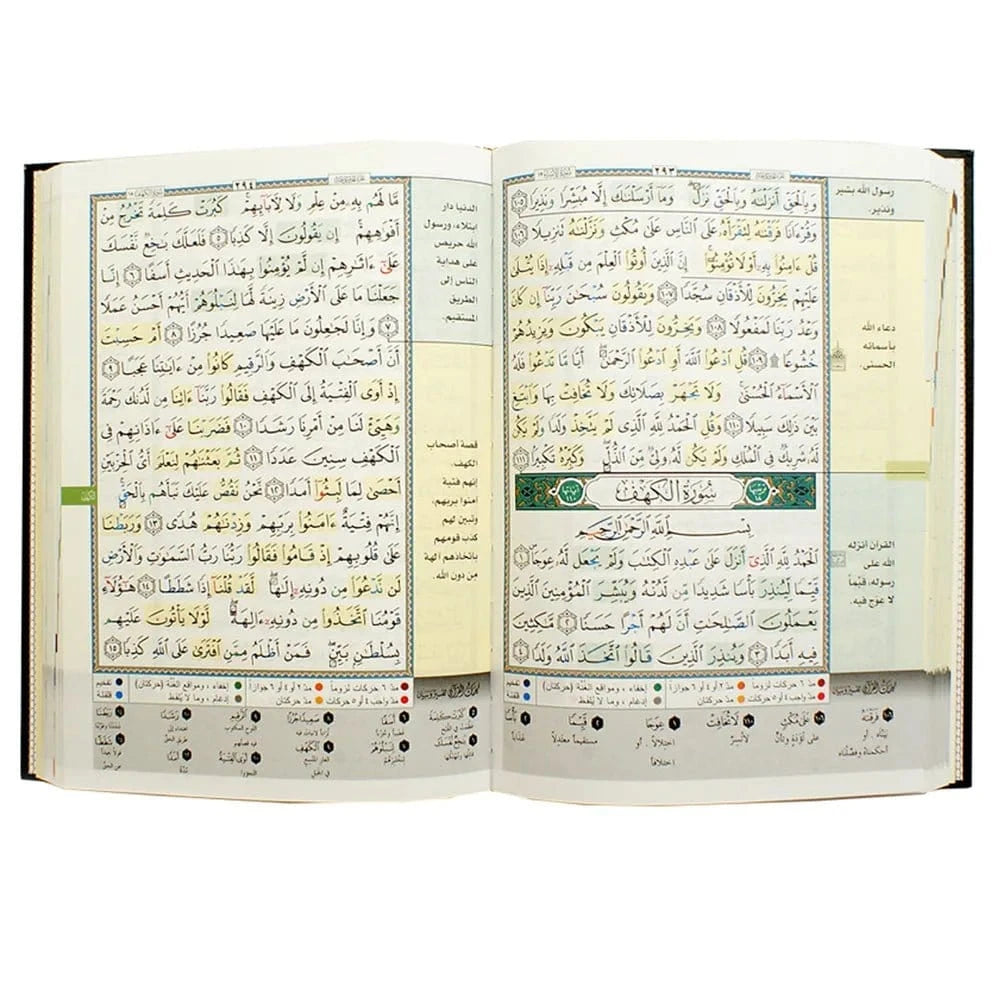 ٢٩٣
وَبِالْحَقِّ أَنزَلْنَٰهُ وَبِالْحَقِّ نَزَلَ ۗ وَمَآ أَرْسَلْنَٰكَ إِلَّا مُبَشِّرًا وَنَذِيرًا ١٠٥
وَقُرْءَانًا فَرَقْنَٰهُ لِتَقْرَأَهُۥ عَلَى ٱلنَّاسِ عَلَىٰ مُكْثٍ وَنَزَّلْنَٰهُ تَنزِيلًا ١٠٦
قُلْ ءَامِنُوا۟ بِهِۦٓ أَوْ لَا تُؤْمِنُوٓا۟ ۚ إِنَّ ٱلَّذِينَ أُوتُوا۟ ٱلْعِلْمَ مِن قَبْلِهِۦٓ إِذَا يُتْلَىٰ
عَلَيْهِمْ يَخِرُّونَ لِلْأَذْقَانِ سُجَّدًا ١٠٧ وَيَقُولُونَ سُبْحَٰنَ رَبِّنَآ إِن كَانَ
وَعْدُ رَبِّنَا لَمَفْعُولًا ١٠٨ وَيَخِرُّونَ لِلْأَذْقَانِ يَبْكُونَ وَيَزِيدُهُمْ
خُشُوعًا ۩ ١٠٩ قُلِ ٱدْعُوا۟ ٱللَّهَ أَوِ ٱدْعُوا۟ ٱلرَّحْمَٰنَ ۖ أَيًّا مَّا تَدْعُوا۟ فَلَهُ
ٱلْأَسْمَآءُ ٱلْحُسْنَىٰ ۚ وَلَا تَجْهَرْ بِصَلَاتِكَ وَلَا تُخَافِتْ بِهَا وَٱبْتَغِ
بَيْنَ ذَٰلِكَ سَبِيلًا ١١٠ وَقُلِ ٱلْحَمْدُ لِلَّهِ ٱلَّذِى لَمْ يَتَّخِذْ وَلَدًا وَلَمْ يَكُن
لَّهُۥ شَرِيكٌ فِى ٱلْمُلْكِ وَلَمْ يَكُن لَّهُۥ وَلِىٌّ مِّنَ ٱلذُّلِّ ۖ وَكَبِّرْهُ تَكْبِيرًا ١١١
سُورَةُ الكَهْفِ
بِسْمِ ٱللَّهِ ٱلرَّحْمَٰنِ ٱلرَّحِيمِ
ٱلْحَمْدُ لِلَّهِ ٱلَّذِىٓ أَنزَلَ عَلَىٰ عَبْدِهِ ٱلْكِتَٰبَ وَلَمْ يَجْعَل لَّهُۥ عِوَجَا ١
قَيِّمًا لِّيُنذِرَ بَأْسًا شَدِيدًا مِّن لَّدُنْهُ وَيُبَشِّرَ ٱلْمُؤْمِنِينَ ٱلَّذِينَ
يَعْمَلُونَ ٱلصَّٰلِحَٰتِ أَنَّ لَهُمْ أَجْرًا حَسَنًا ٢ مَّٰكِثِينَ
فِيهِ أَبَدًا ٣ وَيُنذِرَ ٱلَّذِينَ قَالُوا۟ ٱتَّخَذَ ٱللَّهُ وَلَدًا ٤
رسول الله بشير
ونذير.
دعاء الله
بأسمائه
الحسنى.
القرآن أنزله
الله على
رسوله، قيّماً
لا عوج فيه.
مدّ ٦ حركات لزوماً مدّ ٢ أو ٤ أو ٦ جوازاً إخفاء، ومواقع الغنّة (حركتان) تفخيم
مدّ واجب ٤ أو ٥ حركات مدّ حركتان إدغام، وما لا يُلفظ قلقلة
فَرَقْنَاهُ
بيّنّاه . أو
أحكمناه وفصّلناه
عَلَى مُكْثٍ
على تُؤَدَةٍ وتأنٍّ
لَا تُخَافِتْ
لا تُسِرَّ
عِوَجًا
اختلالاً . أو
اختلافاً
قَيِّمًا
مستقيماً معتدلاً
بَأْسًا
عذاباً
٢٩٤
مَّا لَهُم بِهِۦ مِنْ عِلْمٍ وَلَا لِءَابَآئِهِمْ ۚ كَبُرَتْ كَلِمَةً تَخْرُجُ مِنْ
أَفْوَٰهِهِمْ ۚ إِن يَقُولُونَ إِلَّا كَذِبًا ٥ فَلَعَلَّكَ بَٰخِعٌ نَّفْسَكَ
عَلَىٰٓ ءَاثَٰرِهِمْ إِن لَّمْ يُؤْمِنُوا۟ بِهَٰذَا ٱلْحَدِيثِ أَسَفًا ٦ إِنَّا
جَعَلْنَا مَا عَلَى ٱلْأَرْضِ زِينَةً لَّهَا لِنَبْلُوَهُمْ أَيُّهُمْ أَحْسَنُ عَمَلًا
٧ وَإِنَّا لَجَٰعِلُونَ مَا عَلَيْهَا صَعِيدًا جُرُزًا ٨ أَمْ حَسِبْتَ
أَنَّ أَصْحَٰبَ ٱلْكَهْفِ وَٱلرَّقِيمِ كَانُوا۟ مِنْ ءَايَٰتِنَا عَجَبًا ٩
إِذْ أَوَى ٱلْفِتْيَةُ إِلَى ٱلْكَهْفِ فَقَالُوا۟ رَبَّنَآ ءَاتِنَا مِن لَّدُنكَ رَحْمَةً
وَهَيِّئْ لَنَا مِنْ أَمْرِنَا رَشَدًا ١٠ فَضَرَبْنَا عَلَىٰٓ ءَاذَانِهِمْ فِى
ٱلْكَهْفِ سِنِينَ عَدَدًا ١١ ثُمَّ بَعَثْنَٰهُمْ لِنَعْلَمَ أَىُّ ٱلْحِزْبَيْنِ
أَحْصَىٰ لِمَا لَبِثُوٓا۟ أَمَدًا ١٢ نَّحْنُ نَقُصُّ عَلَيْكَ نَبَأَهُم بِٱلْحَقِّ ۚ
إِنَّهُمْ فِتْيَةٌ ءَامَنُوا۟ بِرَبِّهِمْ وَزِدْنَٰهُمْ هُدًى ١٣ وَرَبَطْنَا
عَلَىٰ قُلُوبِهِمْ إِذْ قَامُوا۟ فَقَالُوا۟ رَبُّنَا رَبُّ ٱلسَّمَٰوَٰتِ وَٱلْأَرْضِ
لَن نَّدْعُوَا۟ مِن دُونِهِۦٓ إِلَٰهًا ۖ لَّقَدْ قُلْنَآ إِذًا شَطَطًا ١٤ هَٰٓؤُلَآءِ
قَوْمُنَا ٱتَّخَذُوا۟ مِن دُونِهِۦٓ ءَالِهَةً ۖ لَّوْلَا يَأْتُونَ عَلَيْهِم
بِسُلْطَٰنٍۭ بَيِّنٍ ۖ فَمَنْ أَظْلَمُ مِمَّنِ ٱفْتَرَىٰ عَلَى ٱللَّهِ كَذِبًا ١٥
الدنيا دار
ابتلاء، ورسول
الله حريص
على هداية
الناس إلى
الطريق
المستقيم.
قصة أصحاب
الكهف.
إنهم فتية
آمنوا بربهم،
وتبين لهم
كذب قومهم
باتخاذهم آلهة
من دون الله.
الكهف
مدّ ٦ حركات لزوماً مدّ ٢ أو ٤ أو ٦ جوازاً إخفاء، ومواقع الغنّة (حركتان) تفخيم
مدّ واجب ٤ أو ٥ حركات مدّ حركتان إدغام، وما لا يُلفظ قلقلة